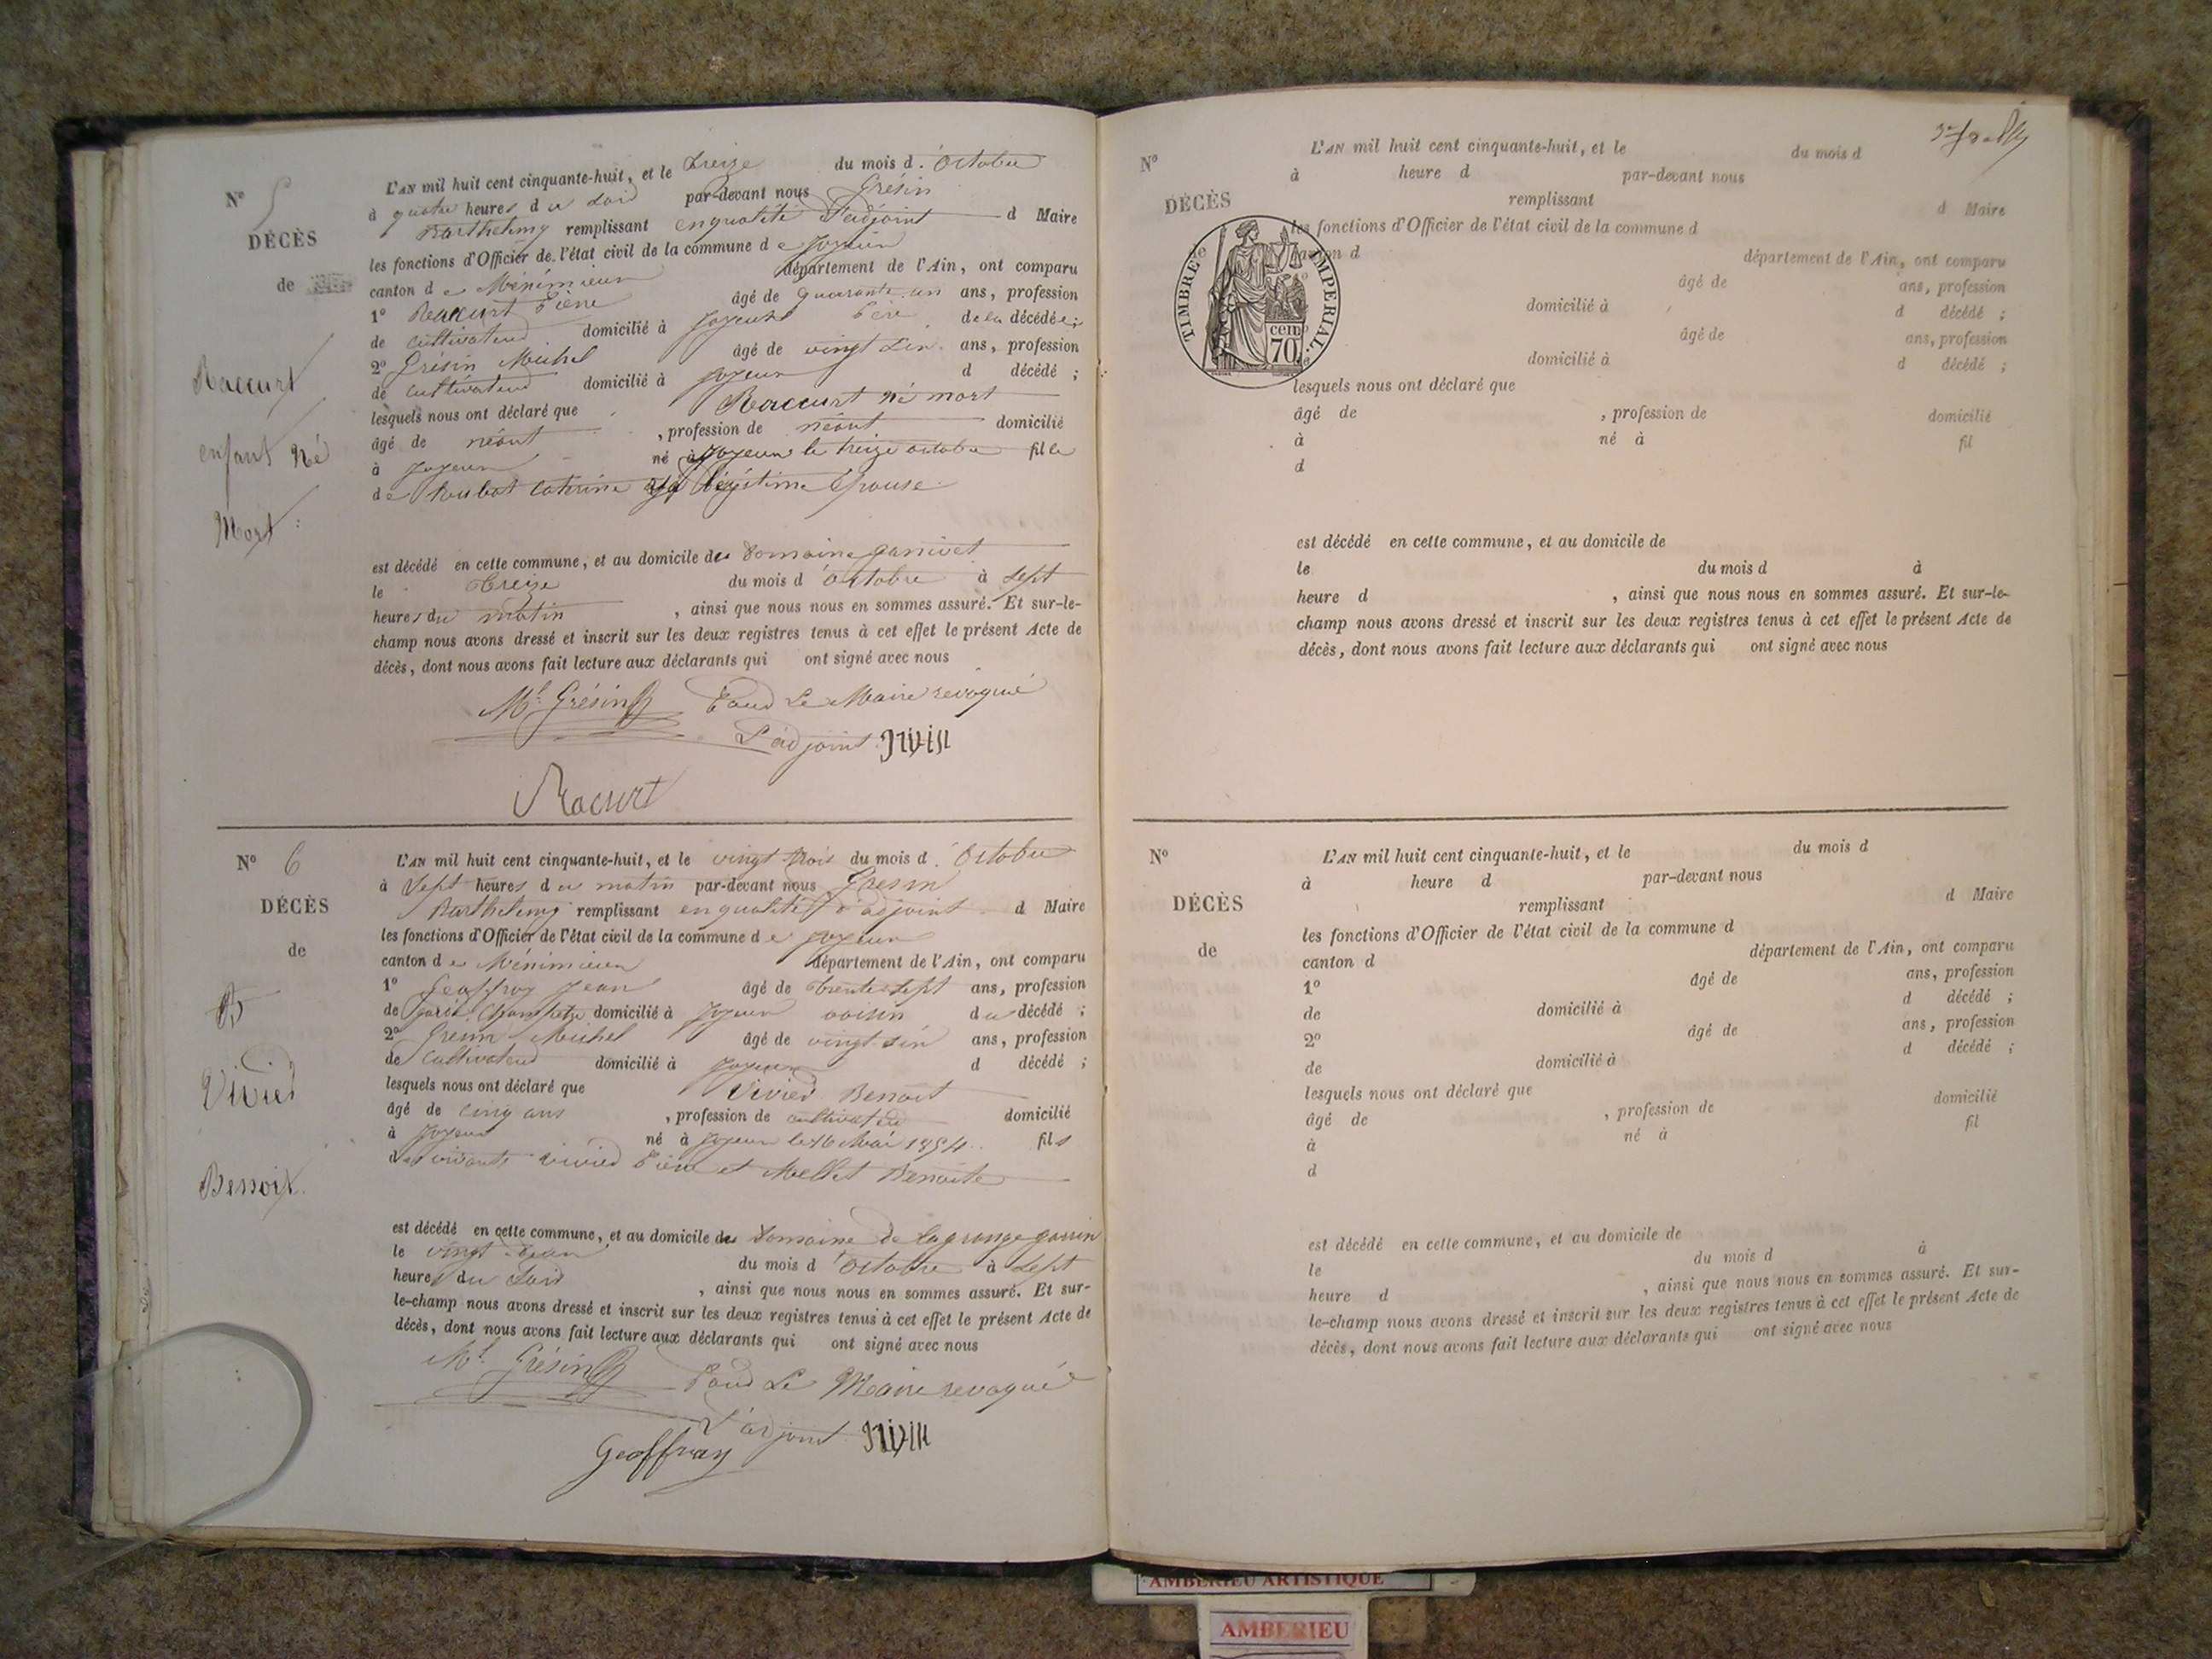 N° 5
DÉCÈS
de
Raccurt
enfant Né
Mort
L'AN mil huit cent cinquante-huit, et le treize du mois d'Octobre
à quatre heures du Soir par-devant nous Grésin
Barthelmy remplissant en qualité d'adjoint d Maire
les fonctions d'Officier de l'état civil de la commune de Joyeux
canton de Méximieux département de l'Ain, ont comparu
1° Raccurt Pierre âgé de quarante un ans, profession
de cultivateur domicilié à Joyeux Père de la décédée;
2° Grésin Michel âgé de vingt ans, profession
de cultivateur domicilié à Joyeux d décédé ;
lesquels nous ont déclaré que Raccurt né mort
âgé de néant , profession de néant domicilié
à Joyeux né à Joyeux le treize octobre fille
de Roubat Caterine légitime épouse
est décédé en cette commune, et au domicile du Domaine
le Treize du mois d'octobre à sept
heures du matin , ainsi que nous nous en sommes assuré. Et sur-le-
champ nous avons dressé et inscrit sur les deux registres tenus à cet effet le présent Acte de
décès, dont nous avons fait lecture aux déclarants qui ont signé avec nous
Ml Grésin Pour Le Maire revoqué
L'adjoint
Racurt
N° 6
DÉCÈS
de
Vivier
Benoit
L'AN mil huit cent cinquante-huit, et le vingt trois du mois d'Octobre
à Sept heures du matin par-devant nous Gresin
Barthelemy remplissant en qualité d'adjoint d Maire
les fonctions d'Officier de l'état civil de la commune de Joyeux
canton de Méximieux département de l'Ain, ont comparu
1° Geoffray Jean âgé de trente sept ans, profession
de garde Champetre domicilié à Joyeux voisin du décédé ;
2° Gresin Michel âgé de vingt ans, profession
de Cultivateur domicilié à Joyeux d décédé ;
lesquels nous ont déclaré que Vivier Benoit
âgé de cinq ans , profession de cultivateur domicilié
à Joyeux né à Joyeux le 16 Mai 1854 fils
des vivants vivier Pierre et Mellet Benoite
est décédé en cette commune, et au domicile du Domaine de la grange
le vingt deux du mois d'Octobre à Sept
heures du Soir , ainsi que nous nous en sommes assuré. Et sur-
le-champ nous avons dressé et inscrit sur les deux registres tenus à cet effet le présent Acte de
décès, dont nous avons fait lecture aux déclarants qui ont signé avec nous
Ml Grésin Pour Le Maire revoqué
L'adjoint
Geoffray
N°
DÉCÈS
TIMBRE IMPERIAL
70 cen
L'AN mil huit cent cinquante-huit, et le du mois d
à heure d par-devant nous
remplissant d Maire
les fonctions d'Officier de l'état civil de la commune d
canton d département de l'Ain, ont comparu
âgé de ans, profession
domicilié à d décédé ;
âgé de ans, profession
domicilié à d décédé ;
lesquels nous ont déclaré que
âgé de , profession de domicilié
à né à fil
d
est décédé en cette commune, et au domicile de
le du mois d à
heure d , ainsi que nous nous en sommes assuré. Et sur-le-
champ nous avons dressé et inscrit sur les deux registres tenus à cet effet le présent Acte de
décès, dont nous avons fait lecture aux déclarants qui ont signé avec nous
N°
DÉCÈS
de
L'AN mil huit cent cinquante-huit, et le du mois d
à heure d par-devant nous
remplissant d Maire
les fonctions d'Officier de l'état civil de la commune d
canton d département de l'Ain, ont comparu
1° âgé de ans, profession
de domicilié à d décédé ;
2° âgé de ans, profession
de domicilié à d décédé ;
lesquels nous ont déclaré que
âgé de , profession de domicilié
à né à fil
d
est décédé en cette commune, et au domicile de
le du mois d à
heure d , ainsi que nous nous en sommes assuré. Et sur-
le-champ nous avons dressé et inscrit sur les deux registres tenus à cet effet le présent Acte de
décès, dont nous avons fait lecture aux déclarants qui ont signé avec nous
AMBERIEU ARTISTIQUE
AMBERIEU